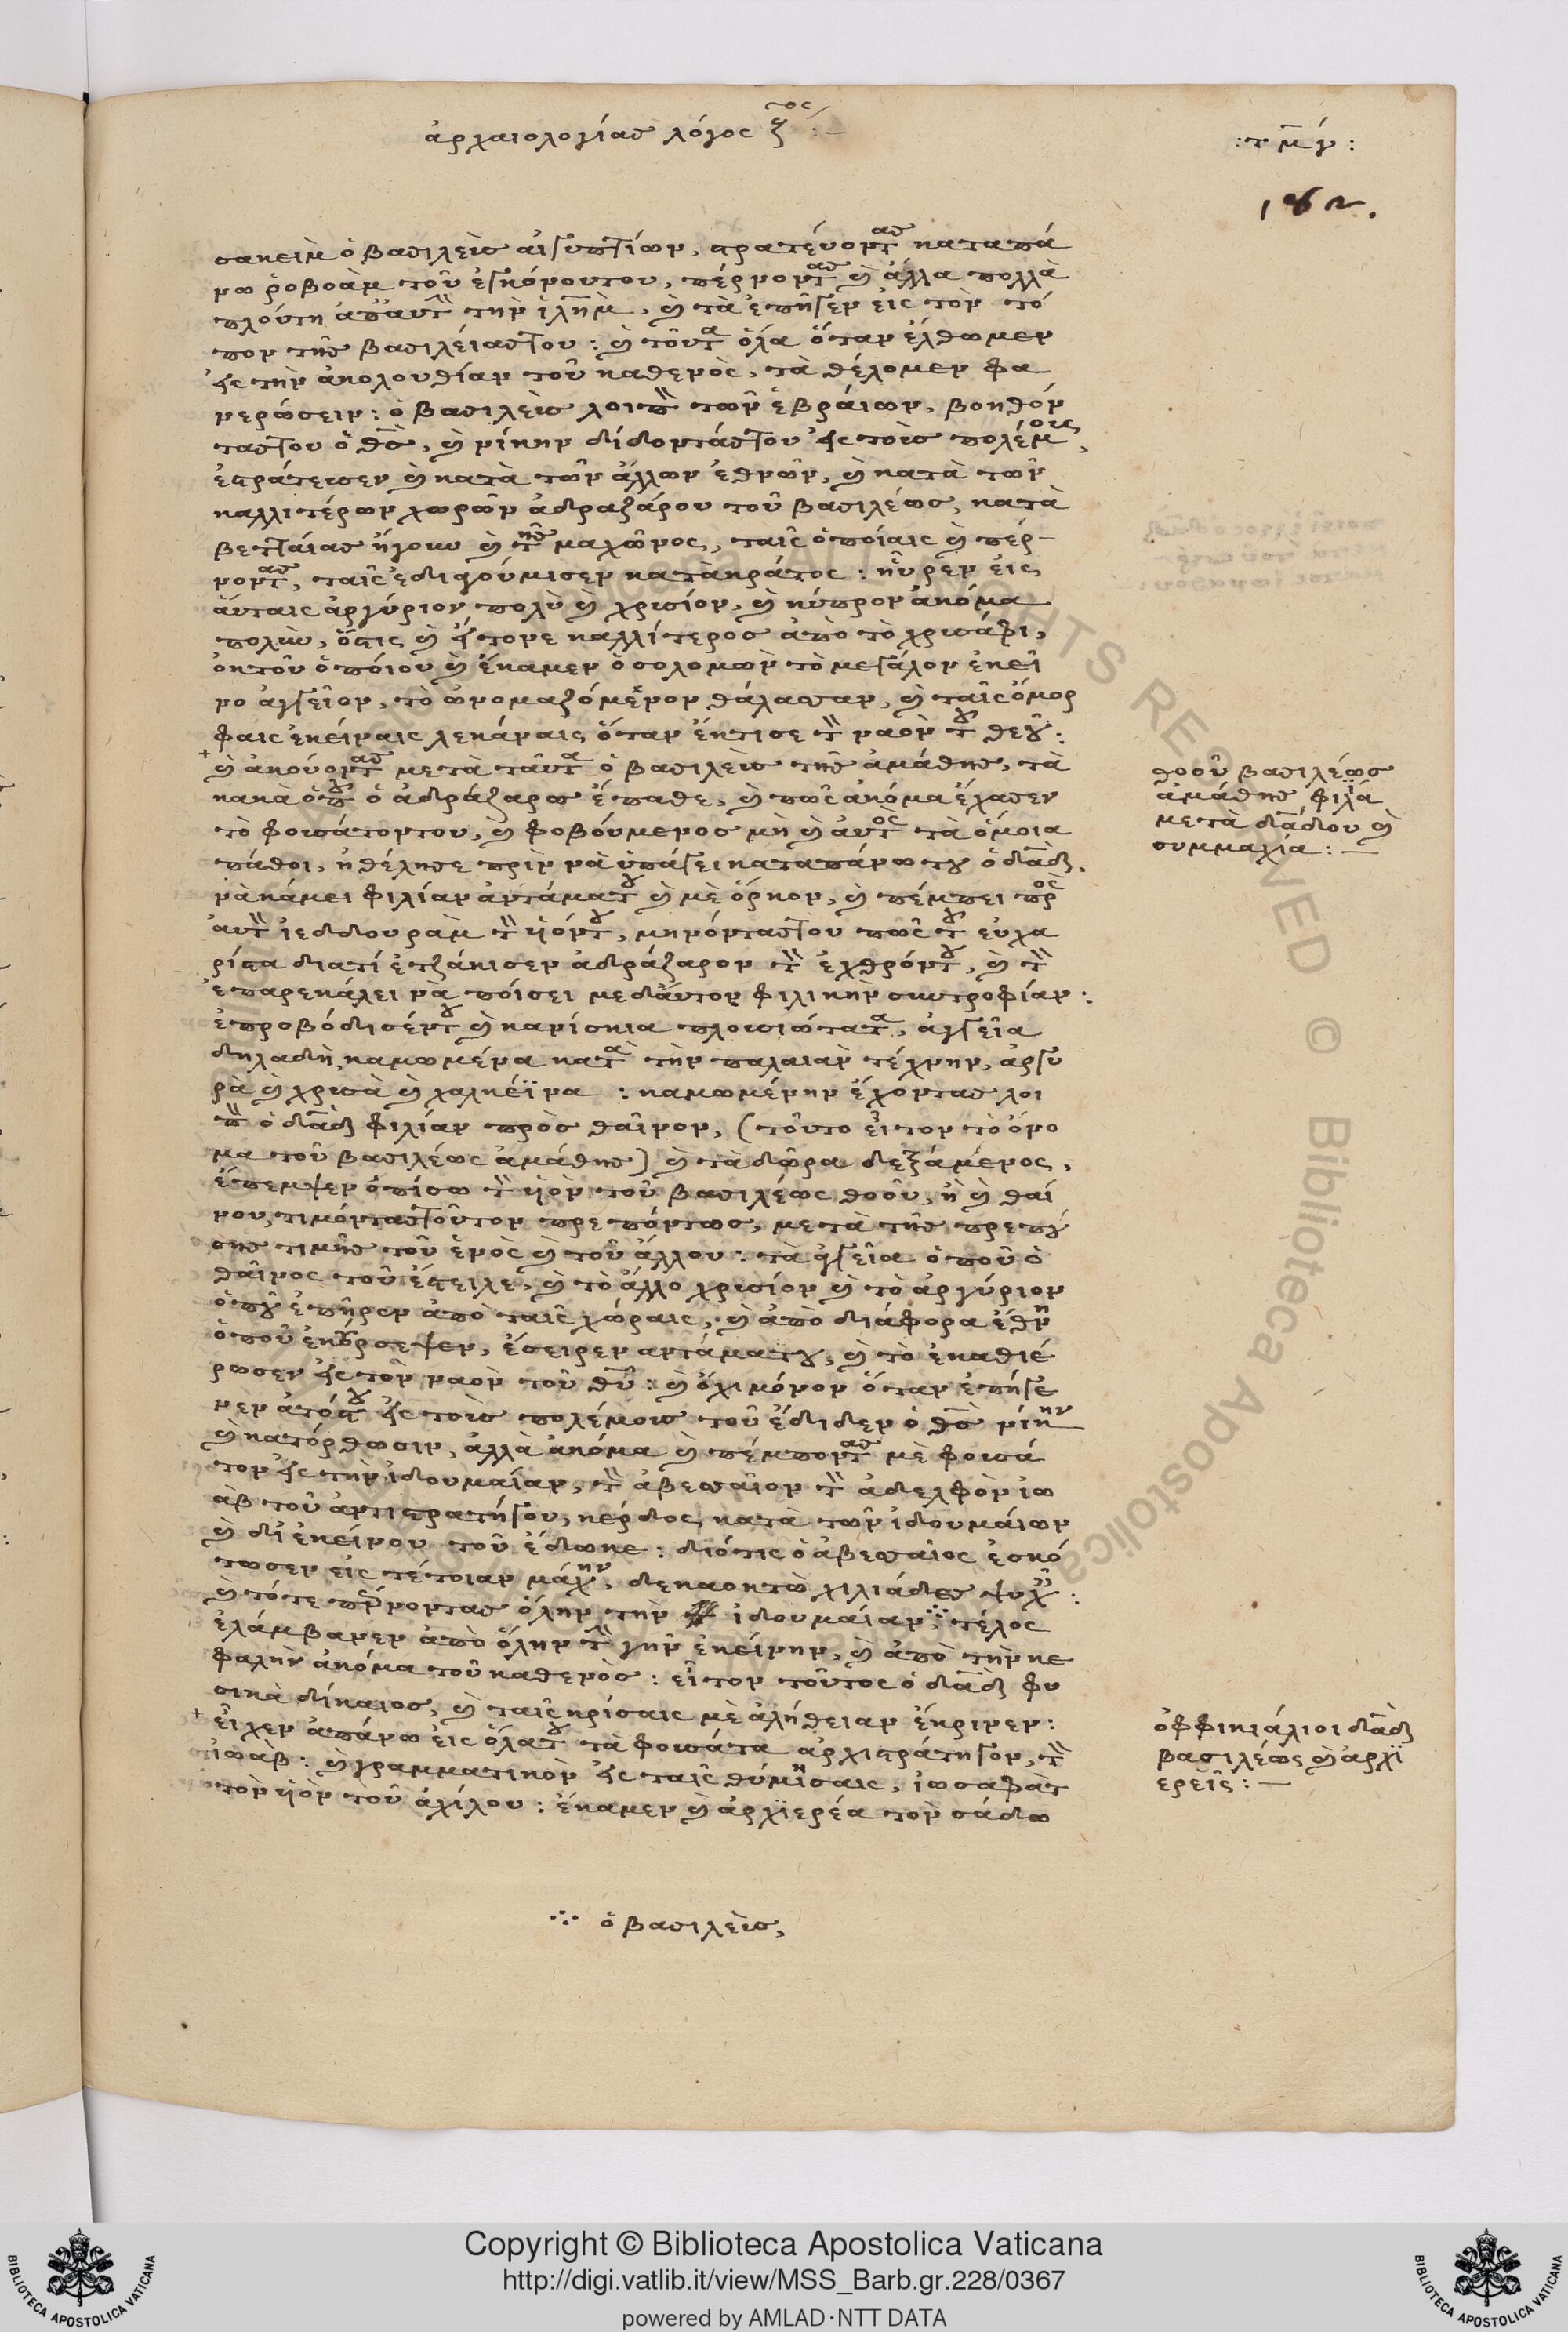 ἀρχαιολογίας λόγος ζος :—
: τμγ :
182.
σακεὶμ ὁ βασιλεὺς αἰγυπτίων, στρατέυοντας καταπά
νω ῥοβοὰμ τοῦ ἐγκόνουτου, πέρνοντας καὶ ἄλλα πολλὰ
πλούτη ἀπαυτὴν τὴν ἱλῆμ, καὶ τὰ ἐπῆγεν εἰς τὸν τό
πον τῆς βασιλείαςτου : καὶ τοῦτα ὅλα ὅταν ἔλθωμεν
εἰς τὴν ἀκολουθίαν τοῦ καθενὸς, τὰ θέλομεν φα
νερώσειν : ὁ βασιλεὺς λοιπὸν τῶν ἑβράιων, βοηθόν
ταςτου ὁ θς, καὶ νίκην δίδοντάςτου εἰς τοὺς πολέμους,
ἐστράτευσεν καὶ κατὰ τῶν ἄλλων ἐθνῶν, καὶ κατὰ τῶν
καλλιτέρων χωρῶν ἀδραζάρου τοῦ βασιλέως, κατὰ
βετταίας ἤγουν καὶ τῆς μαχῶνος, ταῖς ὁποίαις καὶ πέρ-
νοντας, ταῖς ἐδιαγούμισεν κατὰκράτος : ηὗρεν εἰς
ἀύταις ἀργύριον πολὺ καὶ χρυσίον, καὶ κύπρον ἀκόμα
πολὺν, ὅστις καὶ ἦτονε καλλίτερος ἀπὸ τὸ χρυσάφι,
ἐκτοῦ ὁποίου καὶ ἔκαμεν ὁ σολομὼν τὸ μεγάλον ἐκεῖ
νο ἀγγεῖον, τὸ ὠνομαζόμενον θάλασσαν, καὶ ταῖς ὄμορ
φαις ἐκείναις λεκάναις ὅταν ἔκτισε τὸν ναὸν τοῦ θεοῦ :
+ καὶ ἀκούοντας μετὰ ταῦτα ὁ βασιλεὺς τῆς ἀμάθης, τὰ
κακὰ ὁποῦ ὁ ἀδράζαρος ἔπαθε, καὶ πῶς ἀκόμα ἔχασεν
τὸ φουσάτοντου, καὶ φοβούμενος μὴ καὶ ἀυτὸς τὰ ὅμοια
πάθοι, ἠθέλησε πρὶν νὰ ὑπάγει καταπάνω του ὁ δαδ,
νὰ κάμει φιλίαν ἀντάματου καὶ μὲ ὅρκον, καὶ πέμπει πρὸς
ἀυτὸν ἰεδδουρὰμ τὸν ὑιόντου, μηνόνταςτου πῶς του εὐχα
ρίστα διατί ἐτζάκισεν ἀδράζαρον τὸν ἐχθρόντου, καὶ τὸν
ἐπαρεκάλει νὰ ποίσει μεδάυτον φιλικὴν συντροφίαν :
ἐπροβόδισέντου καὶ κανίσκια πλουσιώτατα, ἀγγεῖα
δηλαδὴ, καμωμένα κατὰ τὴν παλαιὰν τέχνην, ἀργυ
ρὰ καὶ χρυσὰ καὶ χαλκέϊνα : καμωμένην ἔχοντας λοι
πὸν ὁ δαδ φιλίαν πρὸς θαῖνον, (τοῦτο εἶτον τὸ ὄνο
μα τοῦ βασιλέως ἀμάθης) καὶ τὰ δῶρα δεξάμενος,
ἔπεμψεν ὀπίσω τὸν ὑιὸν τοῦ βασιλέως θοοῦ, ἢ καὶ θαί
νου, τιμόντας τοῦτον πρεπόντως, μετὰ τῆς πρεπού
σης τιμῆς τοῦ ἑνὸς καὶ τοῦ ἄλλου : τὰ ἀγγεῖα ὁποῦ ὁ
θαῖνος τοῦ ἔστειλε, καὶ τὸ ἄλλο χρυσίον καὶ τὸ ἀργύριον
ὁποῦ ἐπῆρεν ἀπὸ ταῖς χώραις, καὶ ἀπὸ διάφορα ἔθνη
ὁποῦ ἐκούρσεψεν, ἔσειρεν ἀντάματου, καὶ τὸ ἐκαθιέ
ρωσεν εἰς τὸν ναὸν τοῦ θυ : καὶ ὄχι μόνον ὅταν ἐπήγε
νεν ἀτόςτου εἰς τοὺς πολέμους τοῦ ἔδιδεν ὁ θς νίκην
καὶ κατόρθωσιν, ἀλλὰ ἀκόμα καὶ πέμποντας μὲ φουσά
τον εἰς τὴν ἰδουμαίαν, τὸν ἀβεσσαῖον τὸν ἀδελφὸν ἰω
ὰβ τοῦ ἀρχιστρατήγου, κέρδος, κατὰ τῶν ἰδουμαίων
καὶ δι᾽ ἐκείνου τοῦ ἔδωκε : διότις ὁ ἀβεσσαῖος ἐσκό
τωσεν εἰς τέτοιαν μάχην, δεκαοκτὼ χιλιάδες ψυχῶν :
καὶ τότε πέρνοντας ὅλην τὴν ἰδουμαίαν ∴ τέλος
ἐλάμβανεν ἀπὸ ὅλην τὴν γῆν ἐκείνην, καὶ ἀπὸ τὴν κε
φαλὴν ἀκόμα τοῦ καθενὸς : εἶτον τοῦτος ὁ δαδ φυ
σικὰ δίκαιος, καὶ ταῖς κρίσαις μὲ ἀλήθειαν ἔκρινεν :
+ εἶχεν ἀπάνω εἰς ὅλατου τὰ φουσάτα ἀρχιστράτηγον, τὸν
ἰωάβ : καὶ γραμματικὸν εἰς ταῖς θύμησαις, ἰωσαφὰτ
τὸν ὑιὸν τοῦ ἀχίλου : ἔκαμεν καὶ ἀρχϊερέα τὸν σάδω
∴ ὁ βασιλεὺς,
θοοῦ βασιλέως
ἀμάθης φιλΐα
μετὰ δάδου καὶ
συμμαχία : —
ὀφφικιάλιοι δαδ
βασιλέως καὶ ἀρχϊ
ερεῖς : —
Copyright © Biblioteca Apostolica Vaticana
http://digi.vatlib.it/view/MSS_Barb.gr.228/0367
powered by AMLAD·NTT DATA